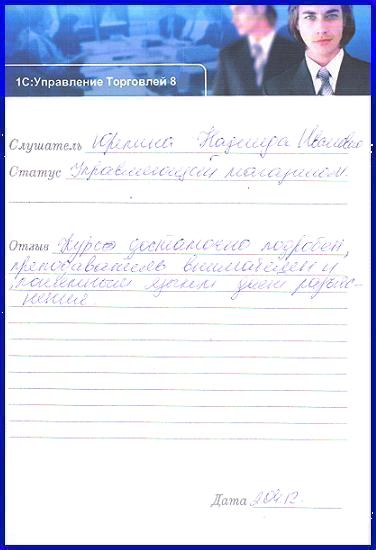 1С:Управление Торговлей 8
Слушатель Юрпина Надежда Ивановна
Статус Управляющий магазином.
Отзыв Курс достаточно подробен,
преподаватель внимателен и
понятным языком дает разъяс-
нения.
Дата